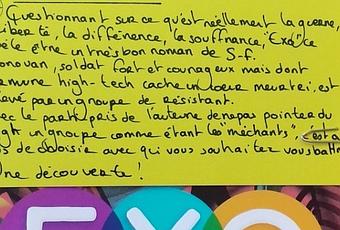 Questionnant sur ce qu'est réellement la guerre,
liberté, la différence, la souffrance, "Exo" se
èle être un très bon roman de S-f.
onovan, soldat fort et courageux mais dont
armure high-tech cache un meurtri, est
levé par un groupe de résistant.
ec le parti pris de l'auteur de ne pas pointer du
igt un groupe comme étant les "méchants", c'est à
us de choisir avec qui vous souhaitez vous battre
Une découverte!
EXO